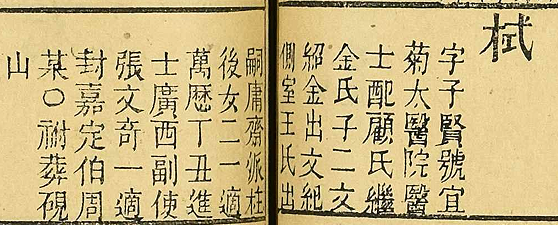 栻
字子賢號宜
菊太醫院醫
士配顧氏繼
金氏子二文
紹金出文紀
側室王氏出
嗣庸齋派柱
後女二一適
萬歷丁丑進
士廣西副使
張文奇一適
封嘉定伯周
某〇祔葬硯
山